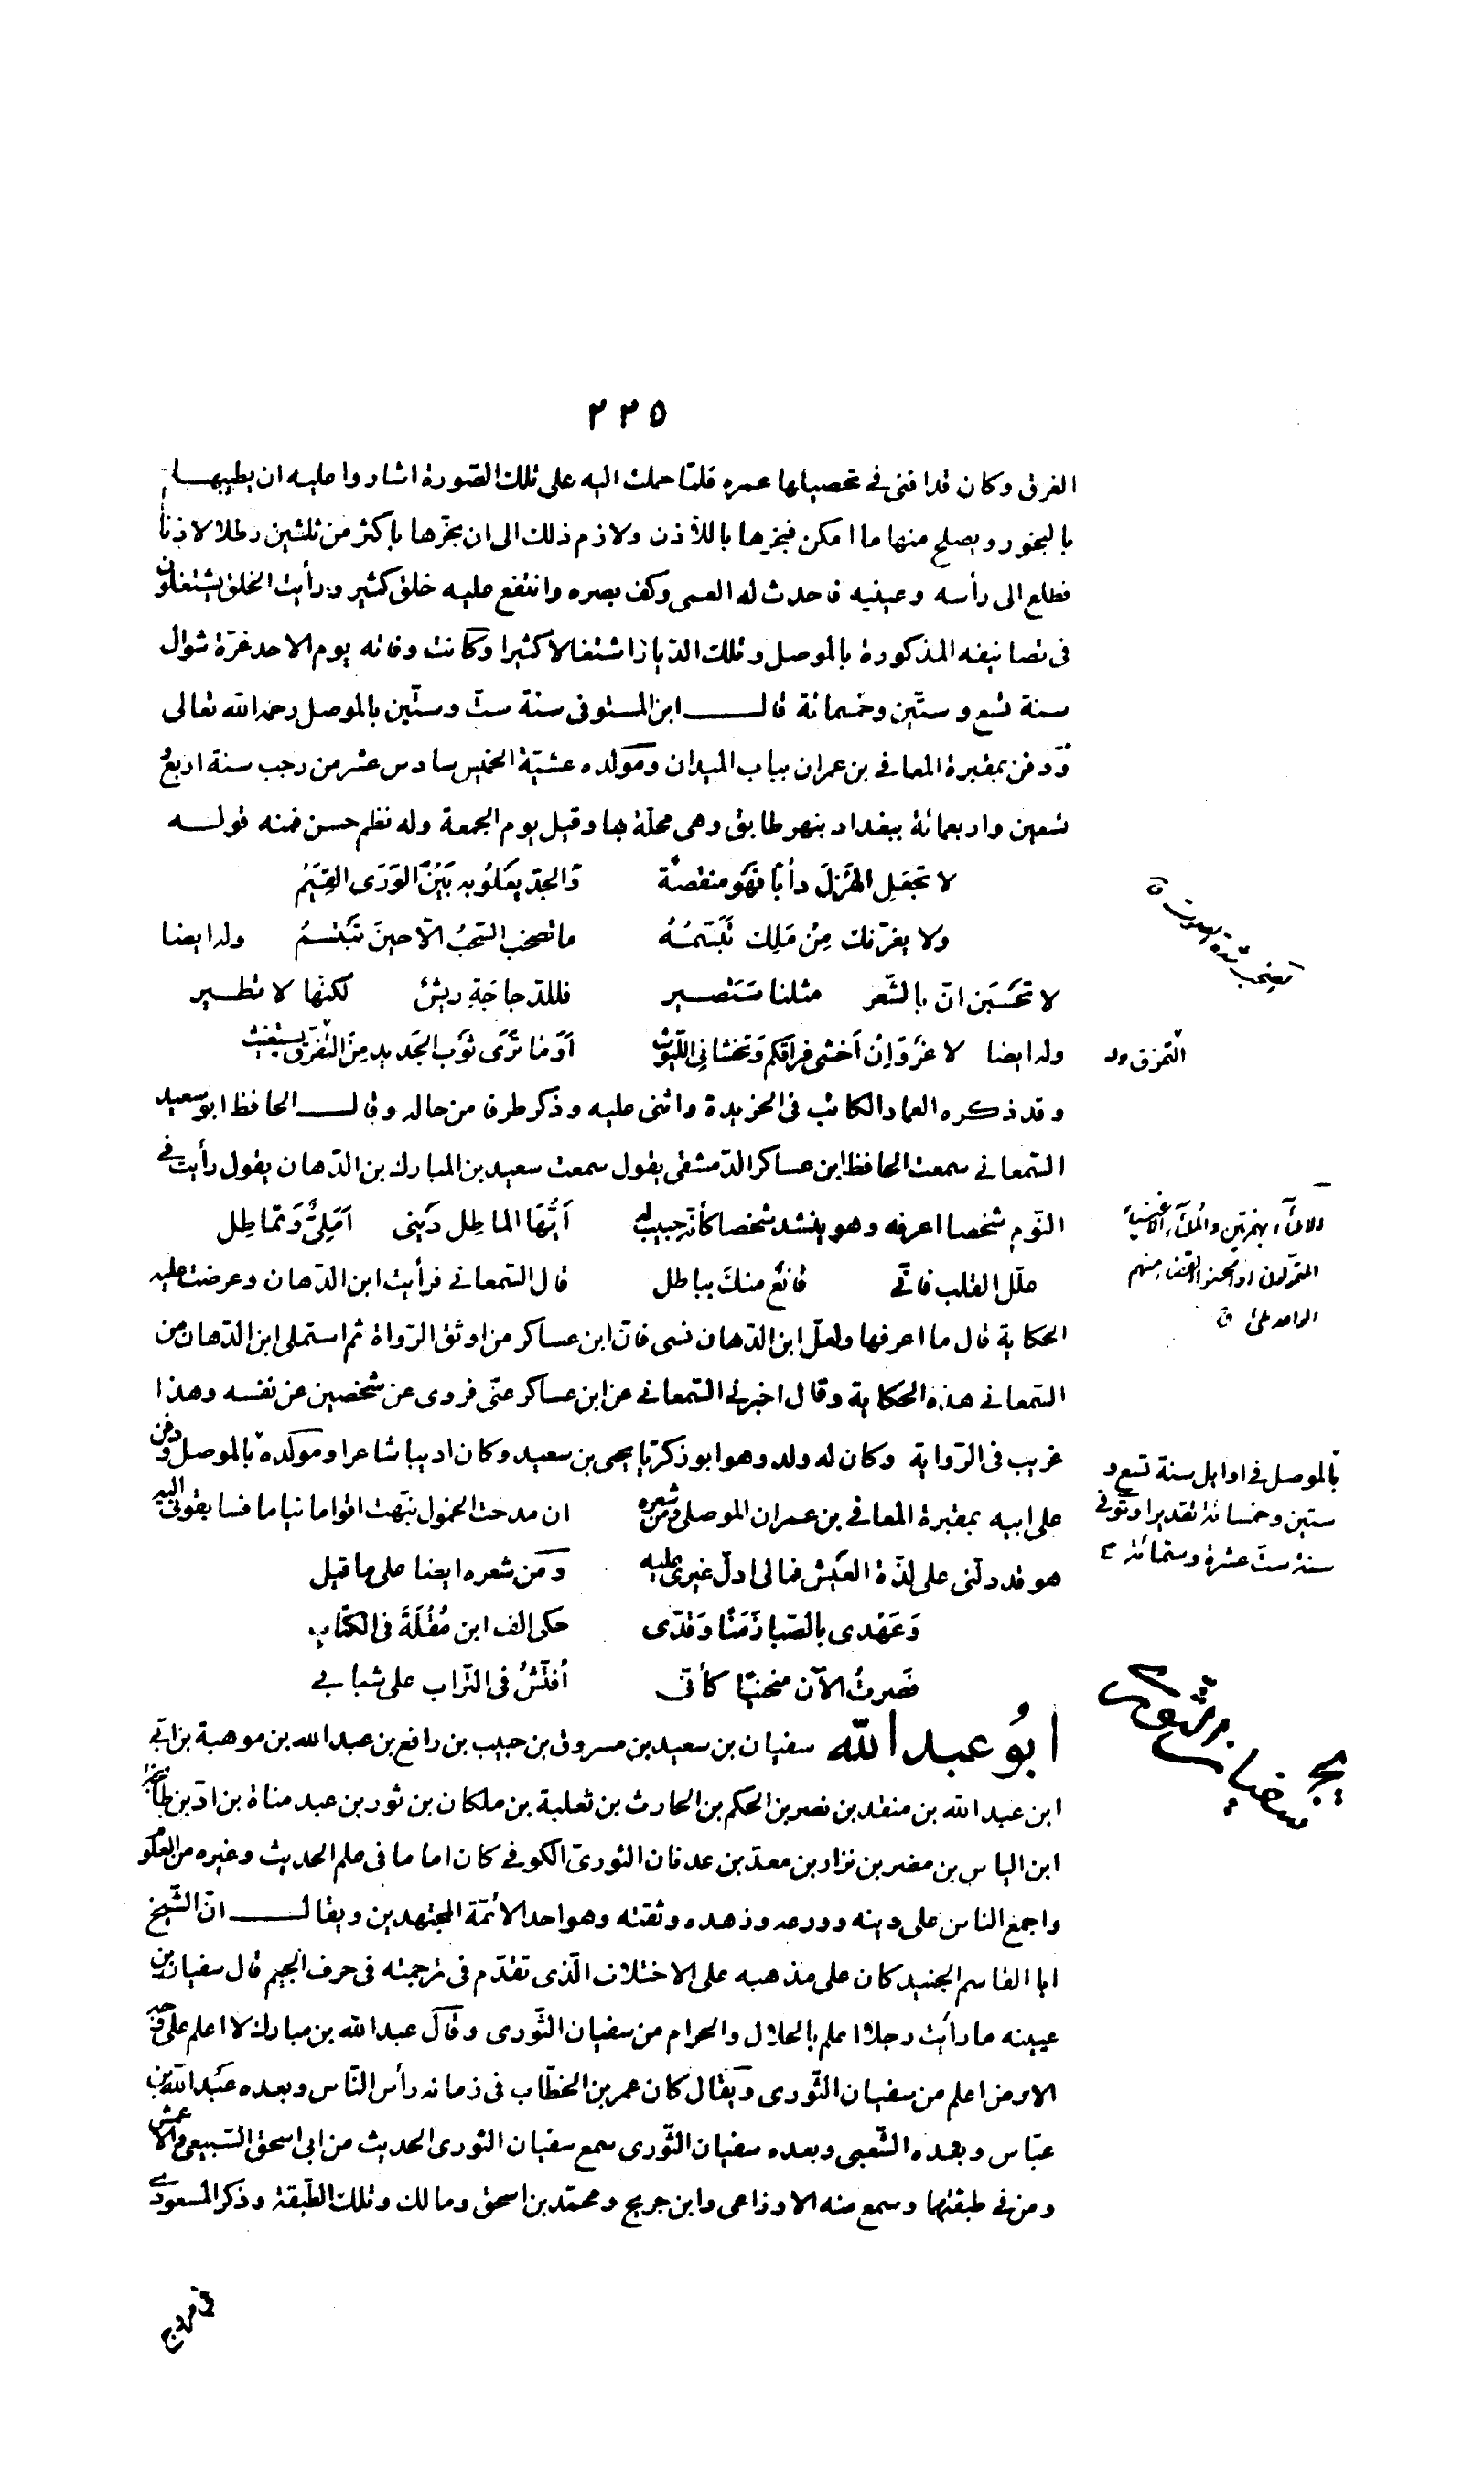 ٢٢٥
الغرق وكان قد افنى فى تحصيلها عمره فلمّا حملت اليه على تلك الصّورة اشاروا عليه ان يطيبها
بالبخور ويصلح منها ما امكن فبخرها باللاذن ولازم ذلك الى ان بخّرها باكثر من ثلثين رطلا لاذنا
فطلع الى رأسه وعينيه فاحدث له العمى وكف بصره وانتفع عليه خلق كثير ورأيت الخلق يشتغلون
فى تصانيفه المذكورة بالموصل وتلك الديار اشتغالا كثيرا وكانت وفاته يوم الاحد غرّة شوال
سنة تسع وستّين وخمسمائة قال ابن المستوفى سنة ستّ وستّين بالموصل رحمه الله تعالى
ودفن بمقبرة المعافى بن عمران بباب الميدان ومولده عشيّة الخميس سادس عشر من رجب سنة اربع و
تسعين واربعمائة ببغداد بنهر طابق وهى محلّة بها وقيل يوم الجمعة وله نظم حسن فمنه قوله
لا تجعل الهَزلَ دأبًا فهو منقصة وَالجدّ يعلو به بَيْنَ الوَرَى القِيَمُ
ولا يغرّنك مِنْ مَلِك تَبَسّمُهُ ما تصخب السّحبُ الّا حينَ تَبْتسمُ وله ايضا
لا تحسَبَن انّ بالشّعر مثلنا سَتَصير فللدّجاجَةِ ريشٌ لكنّها لا تطير
وله ايضا لا غَرْوَ اِنْ اَخشى فراقكم وَتخشانى اللّيوث اَوَمَا تَرَى ثَوب الجَديد مِنَ التفرّق يستغيث
التمزق ول
وقد ذكره العماد الكاتب فى الخريدة واثنى عليه وذكر طرفا من حاله وقال الحافظ ابو سعيد
السّمعانى سمعت الحافظ ابن عساكر الدّمشقى يقول سمعت سعيد بن المبارك بن الدّهان يقول رأيت فى
النّوم شخصا اعرفه وهو ينشد شخصا كأنه حبيب له اَيّهَا الماطِل دَينى اَمَلِىٌّ وَتماطِل
علّل القلب فانّى قانعٌ منكَ بباطل قال السّمعانى فرأيت ابن الدّهان وعرضت عليه
الحكاية قال ما اعرفها ولعلّ ابن الدّهان نسى فانّ ابن عساكر من اوثق الرّواة ثم استملى ابن الدّهان من
السّمعانى هذه الحكاية وقال اخبرنى السّمعانى عن ابن عساكر عنّى فروى عن شخصين عن نفسه وهذا
غريب فى الرّواية وكان له ولد وهو ابو زكريّا يحيى بن سعيد وكان اديبا شاعرا ومولده بالموصل ودفن
بالموصل فى اوايل سنة تسع و
ستين وخمسمائة تقديرا وتوفى
سنة ستّ عشرة وستمائة
على ابيه بمقبرة المعافى بن عمران الموصلى ومن شعره ان مدحت الخمول نبّهت اقواما نياما فسابقونى اليه
هو قد دلّنى على لذّة العَيش فمالى ادلّ غيرى عليه ومن شعره ايضا على ما قيل
وَعَهْدى بالصّبا زَمَنًا وَقدّى حكى الف ابن مُقْلَةَ فى الكتاب
فصرتُ الآن منحنيًا كأنّى اُفتّشُ فى التّراب على شبابى
ابُو عبد الله سفيان بن سعيد بن مسروق بن حبيب بن رافع بن عبد الله بن موهبة بن ابى
ابن عبد الله بن منقذ بن نصر بن الحكم بن الحارث بن ثعلبة بن ملكان بن ثور بن عبد مناة بن ادّ بن طابخة
ابن الياس بن مضر بن نزار بن معدّ بن عدنان الثورىّ الكوفى كان اماما فى علم الحديث وغيره من العلوم
واجمع الناس على دينه وورعه وزهده وثقته وهو احد الأئمّة المجتهدين ويقال انّ الشّيخ
ابا القاسم الجنيد كان على مذهبه على الاختلاف الّذى تقدّم فى ترجمته فى حرف الجيم قال سفيان بن
عيينه ما رأيت رجلا اعلم بالحلال والحرام من سفيان الثّورى وقال عبد الله بن مبارك لا اعلم على وجه
الارض اعلم من سفيان الثّورى ويقال كان عمر بن الخطّاب فى زمانه رأس النّاس وبعده عَبد الله بن
عبّاس وبعده الشّعبى وبعده سفيان الثّورى سمع سفيان الثورى الحديث من ابى اسحق السّبيعى والاعمش
ومن فى طبقتهما وسمع منه الاوزاعى وابن جريج ومحمّد بن اسحق ومالك وتلك الطّبقة وذكر المسعودى
فى مروج